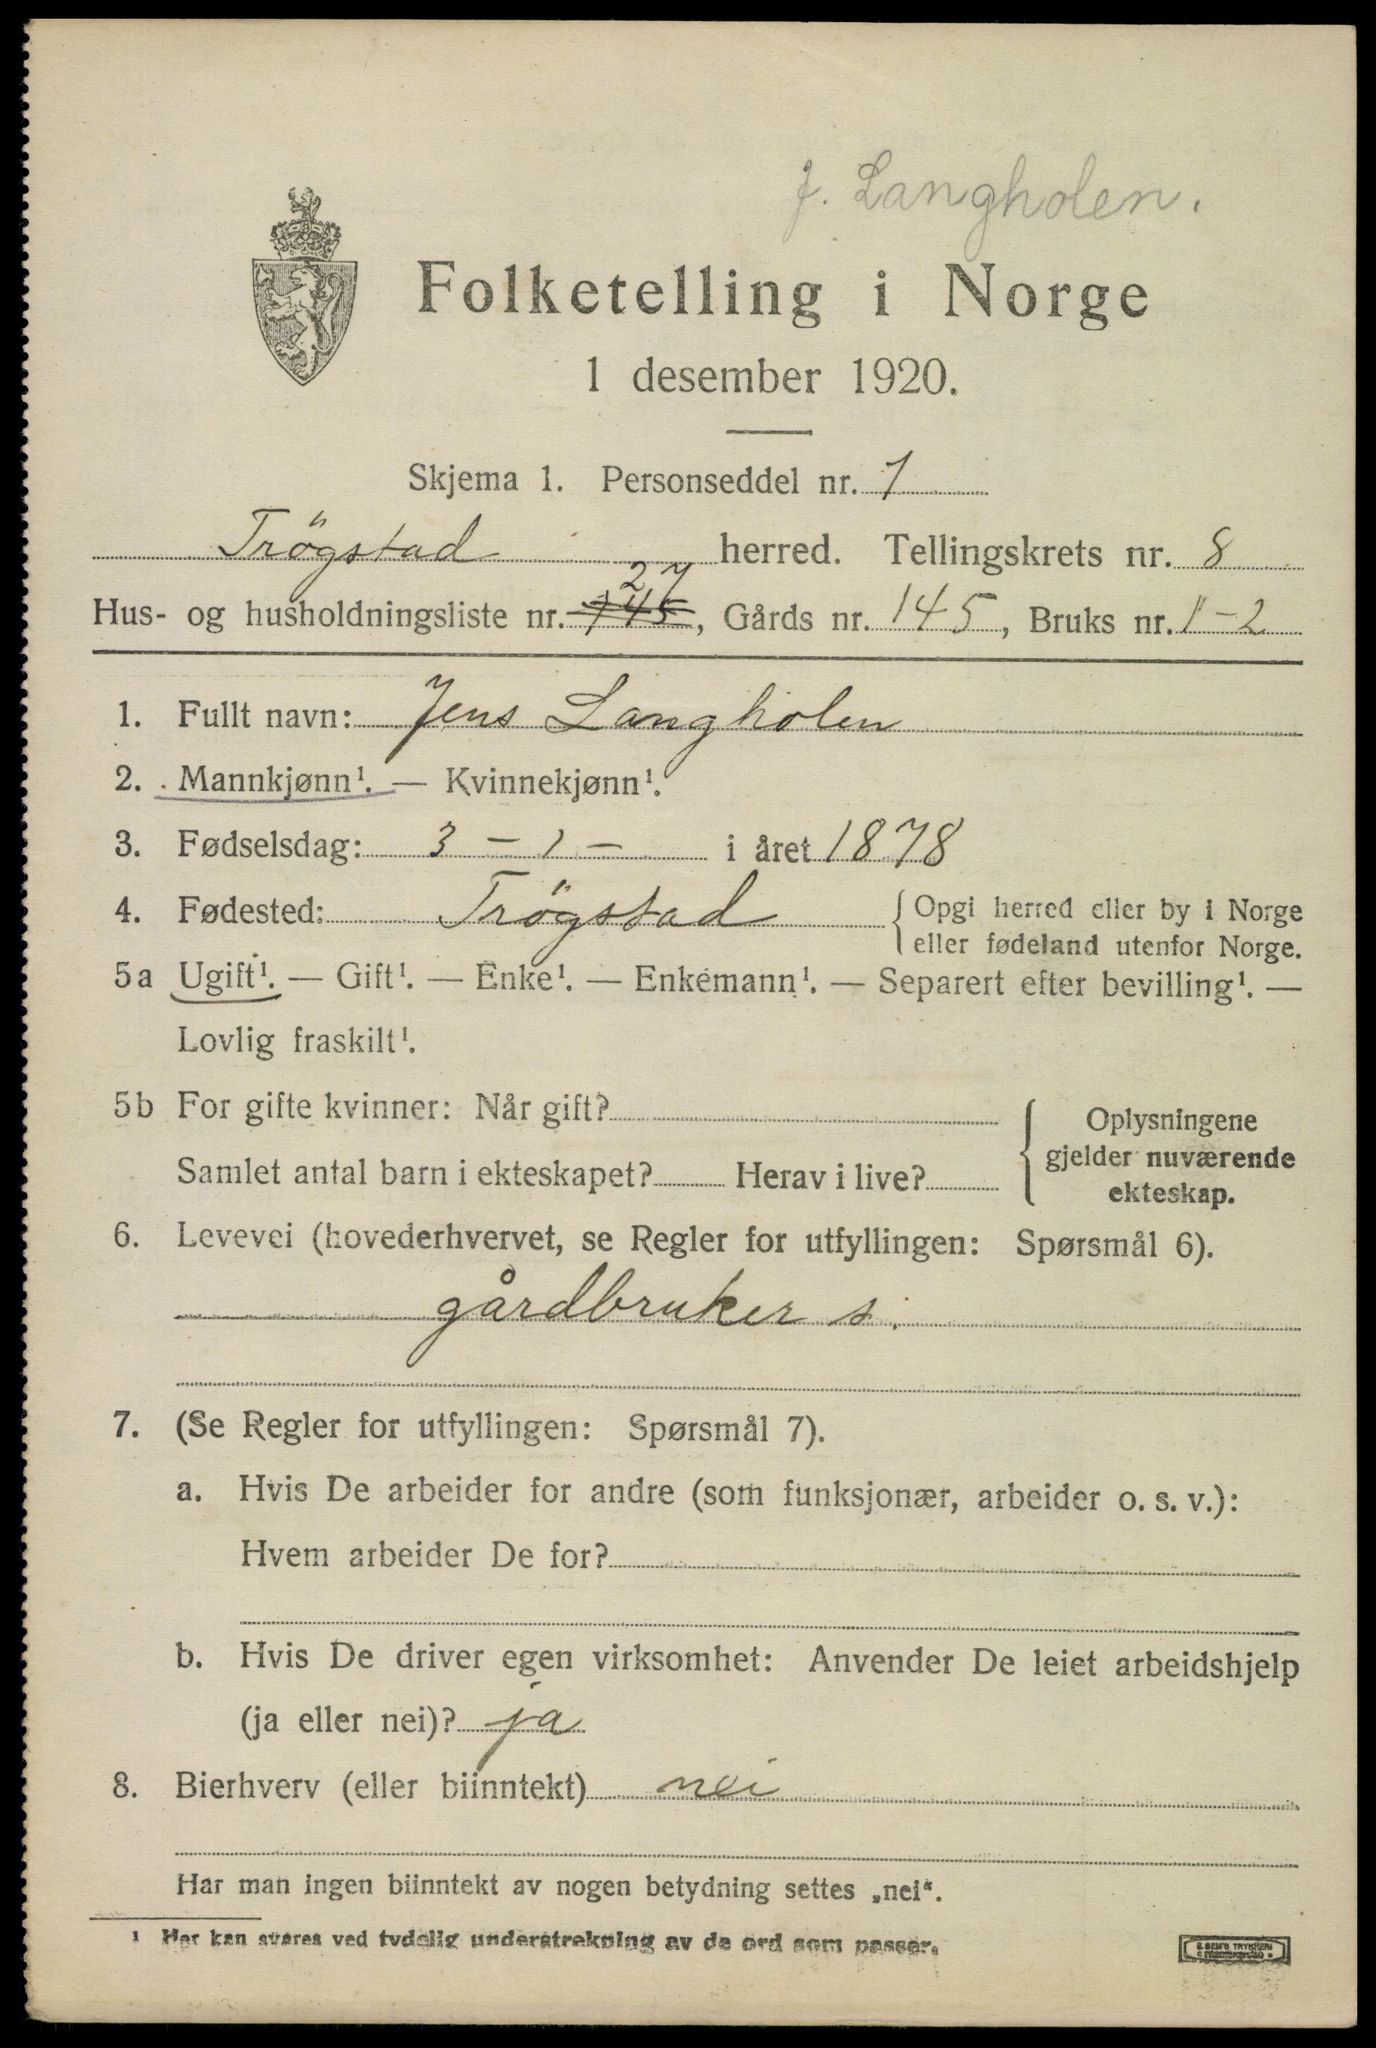 J. Langholen.
Folketelling i Norge
1 desember 1920.
Skjema 1. Personseddel nr. 1
Trögstad herred. Tellingskrets nr. 8
27
Hus- og husholdningsliste nr. 145, Gårds nr. 145, Bruks nr. 1-2
1. Fullt navn: Jens Langholen
2. Mannkjønn¹. — Kvinnekjønn¹.
3. Fødselsdag: 3 - 1 - i året 1878
4. Fødested: Trögstad { Opgi herred eller by i Norge
eller fødeland utenfor Norge.
5a Ugift¹. — Gift¹. — Enke¹. — Enkemann¹. — Separert efter bevilling¹. —
Lovlig fraskilt¹.
5b For gifte kvinner: Når gift?
Samlet antal barn i ekteskapet? Herav i live?
{ Oplysningene
gjelder nuværende
ekteskap.
6. Levevei (hovederhvervet, se Regler for utfyllingen: Spørsmål 6).
gårdbruker s.
7. (Se Regler for utfyllingen: Spørsmål 7).
a. Hvis De arbeider for andre (som funksjonær, arbeider o. s. v.):
Hvem arbeider De for?
b. Hvis De driver egen virksomhet: Anvender De leiet arbeidshjelp
(ja eller nei)? ja
8. Bierhverv (eller biinntekt) nei
Har man ingen biinntekt av nogen betydning settes „nei“.
¹ Her kan svares ved tydelig understrekning av de ord som passer.